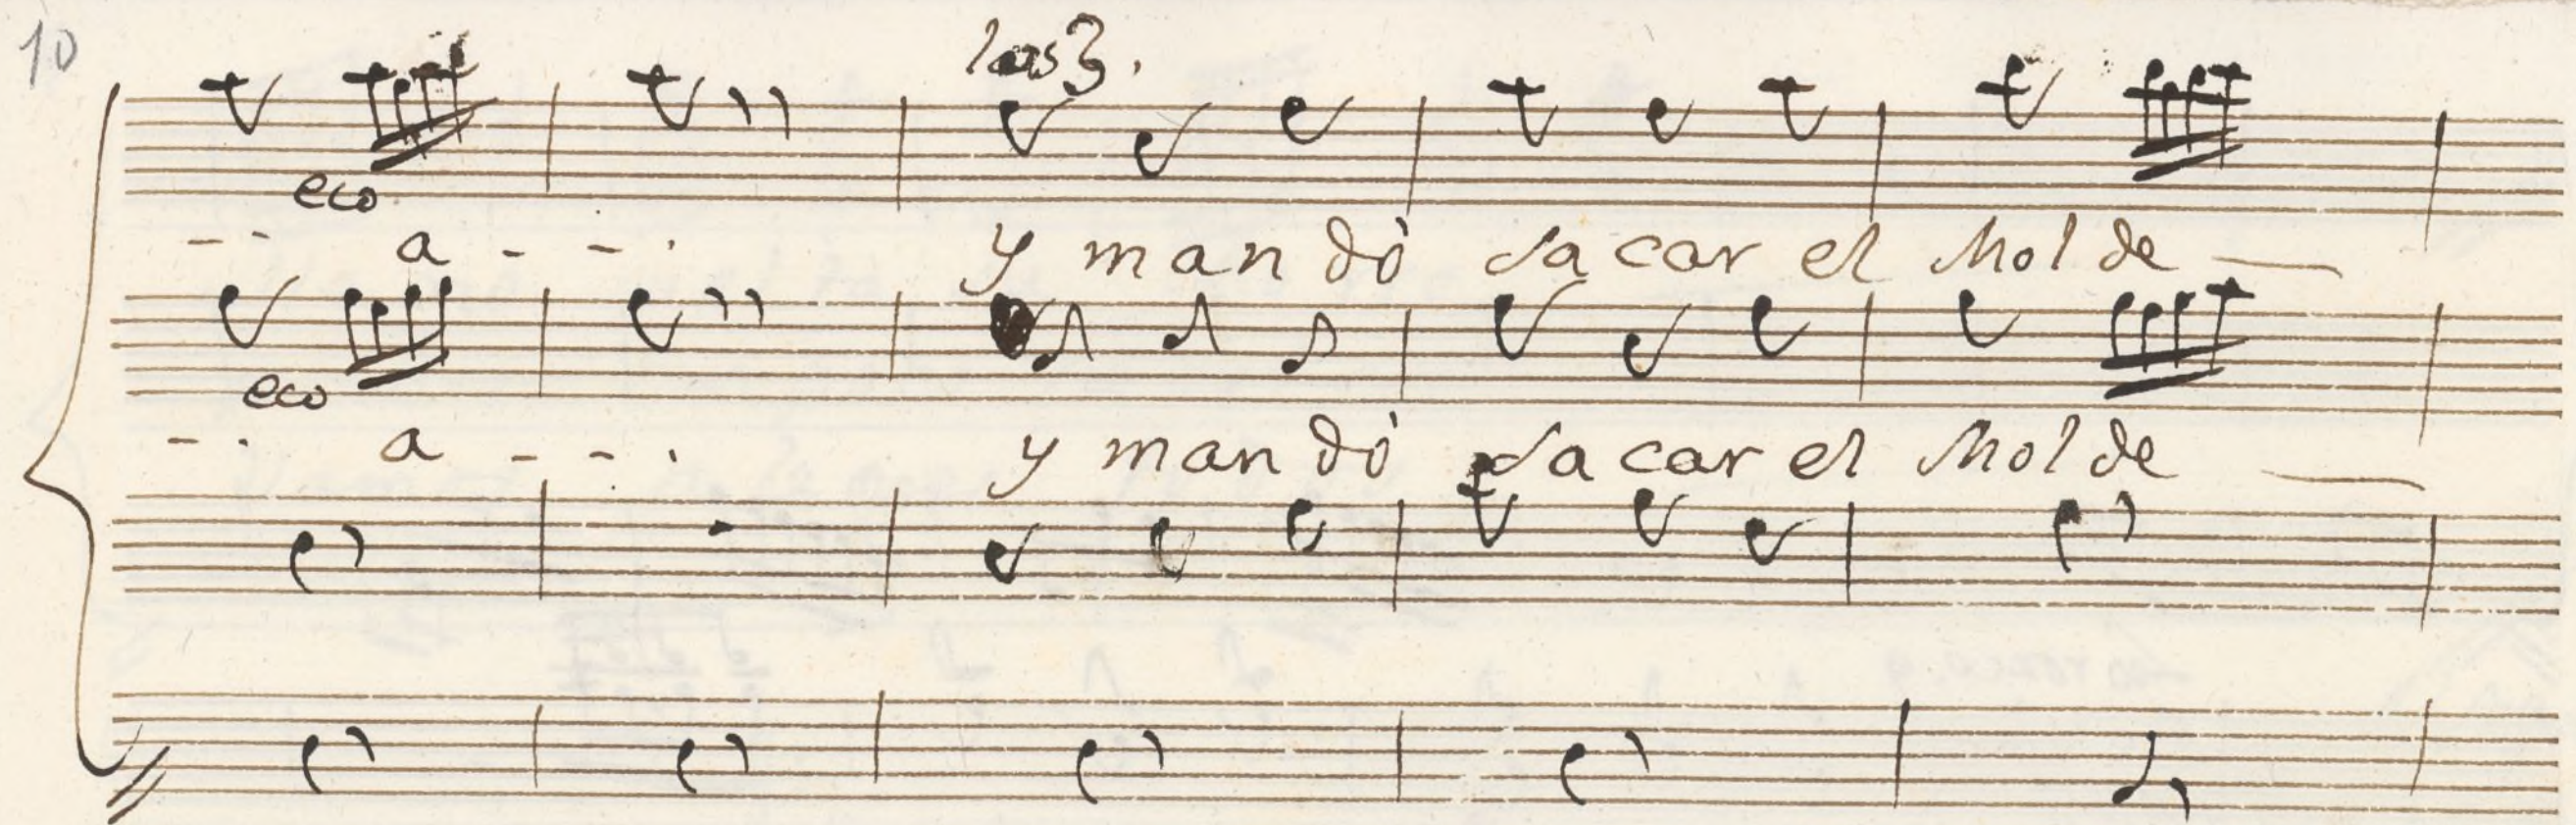 10
las 3.
eco
-- a - - . y mandò sacar el Molde —
eco
-. a - - . y mandò sacar el Molde —